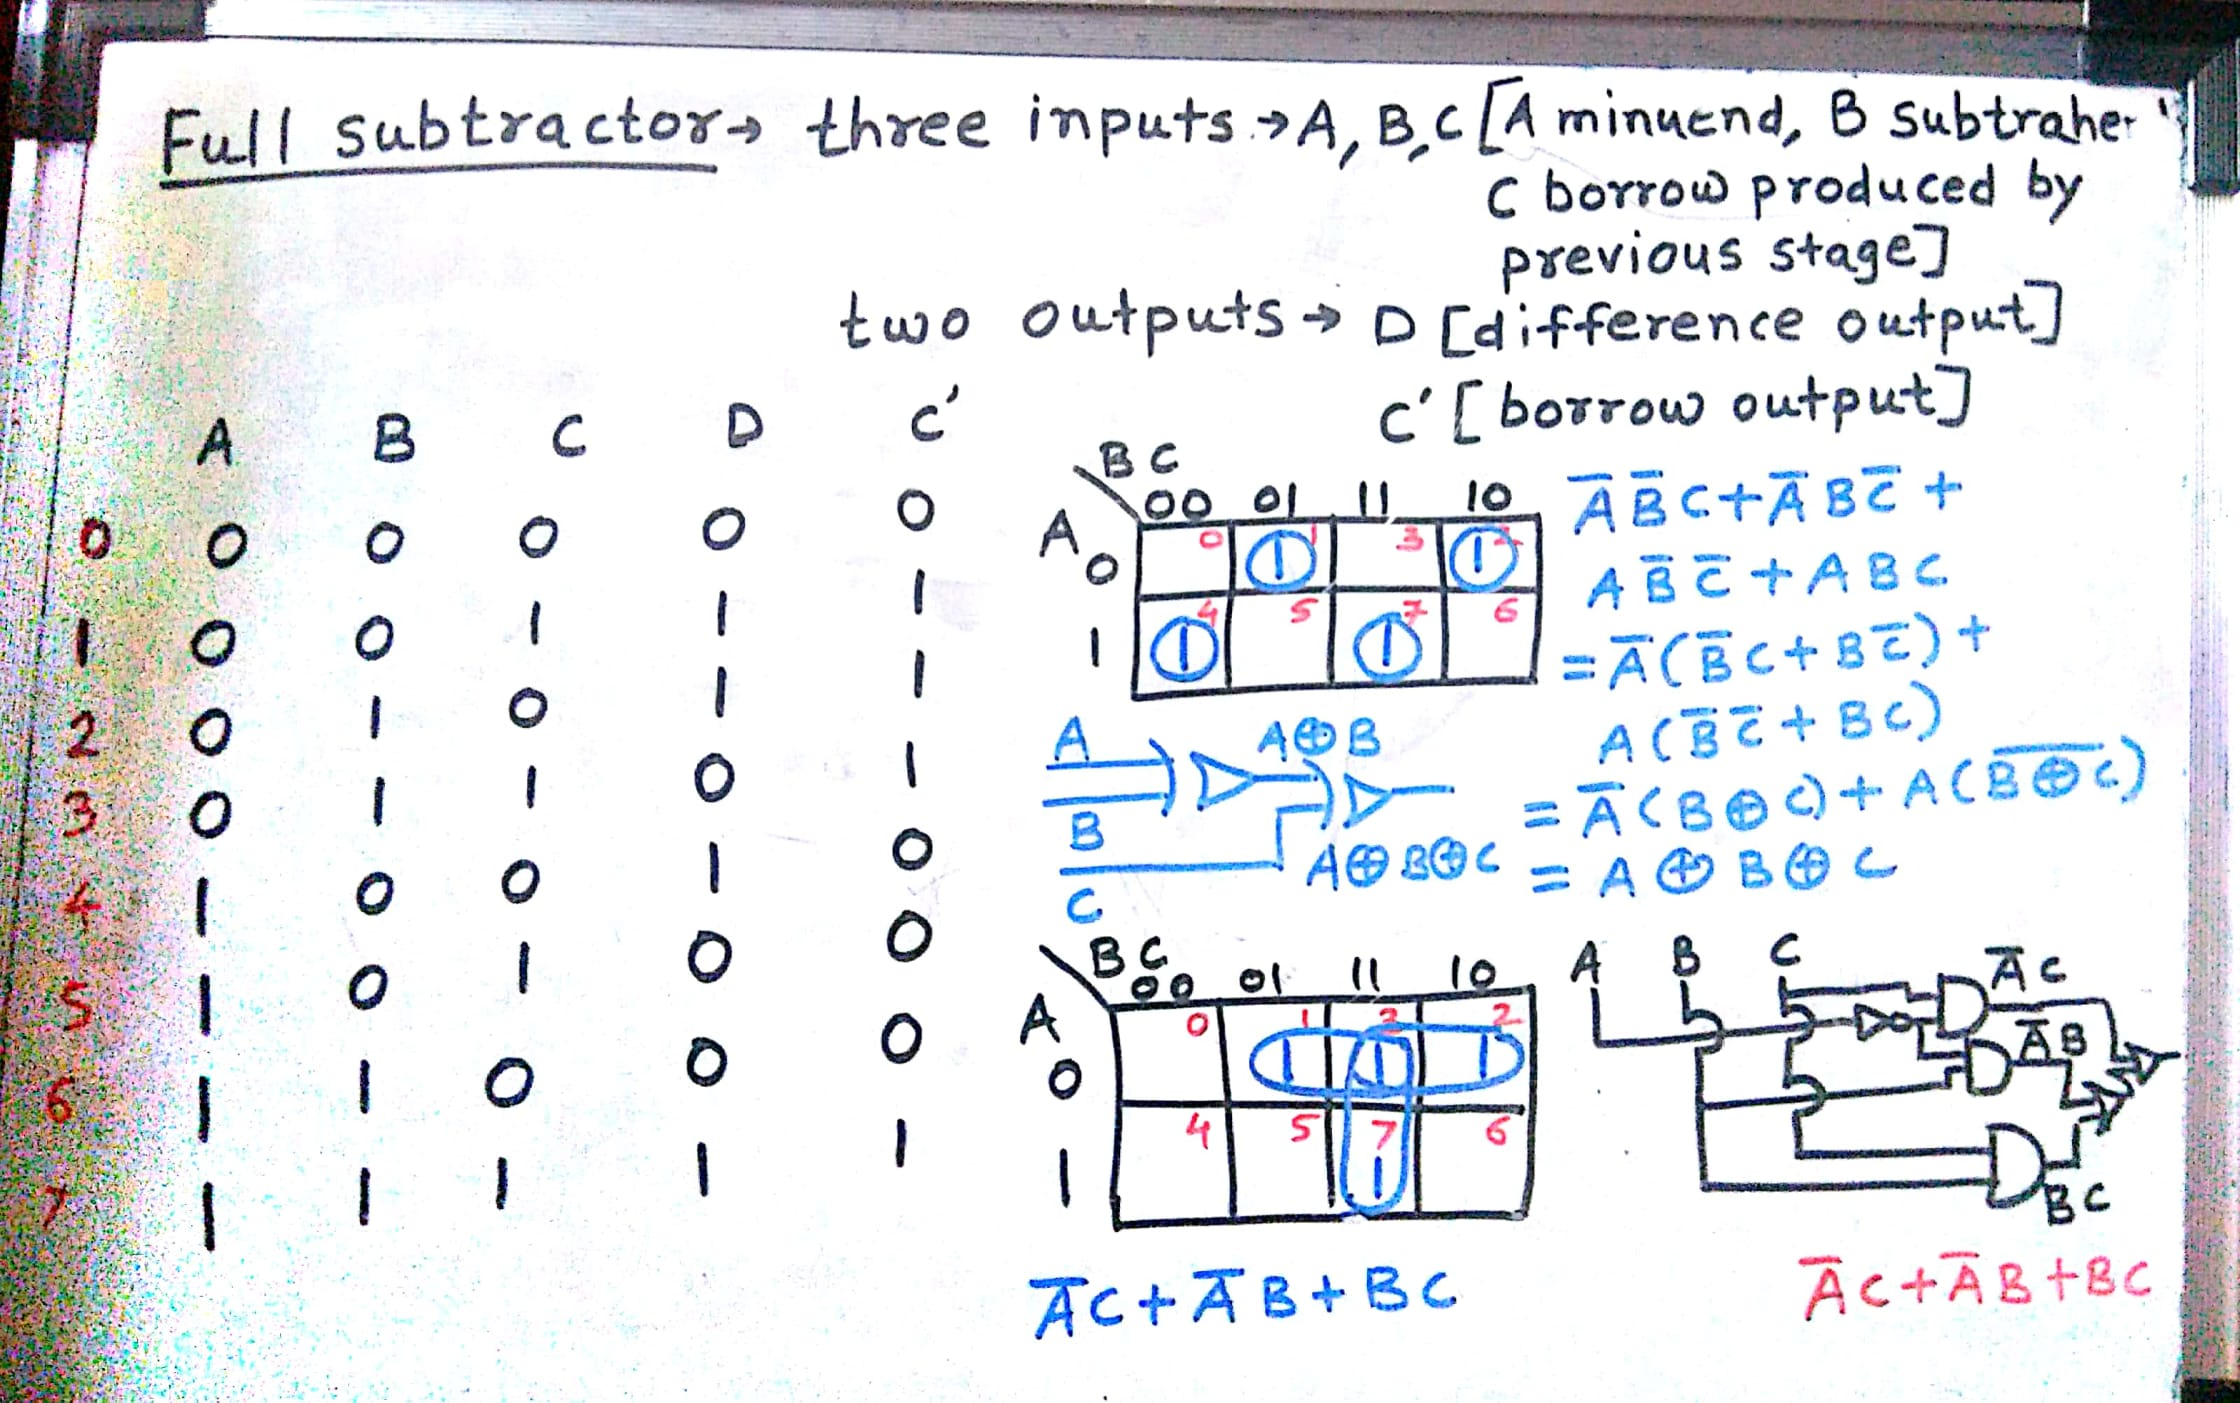 Full subtractor→ three inputs→A, B,C [A minuend, B
C borrow produced by
previous stage]
two outputs→ D [difference output]
C' [borrow output]
A B C D C'
0 0 0 0 0 0
1 0 0 1 1 1
2 0 1 0 1 1
3 0 1 1 0 1
4 1 0 0 1 0
5 1 0 1 0 0
6 1 1 0 0 0
7 1 1 1 1 1
BC
00 01 11 10
A
0 0 1 1 3 1 2
1 4 1 5 7 1 6
A̅B̅C+A̅BC̅+
AB̅C̅+ABC
=A̅(B̅C+BC̅)+
A(B̅C̅+BC)
=A̅(B⊕C)+A(B̅⊕̅C̅)
=A⊕B⊕C
A A⊕B
B
A⊕B⊕C
C
BC
00 01 11 10
A
0 0 1 1 3 1 2 1
1 4 5 7 1 6
A̅C+A̅B+BC
A B C
A̅C
A̅B
BC
A̅C+A̅B+BC